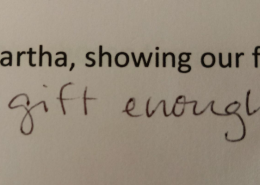 artha, showing our f
gift enough